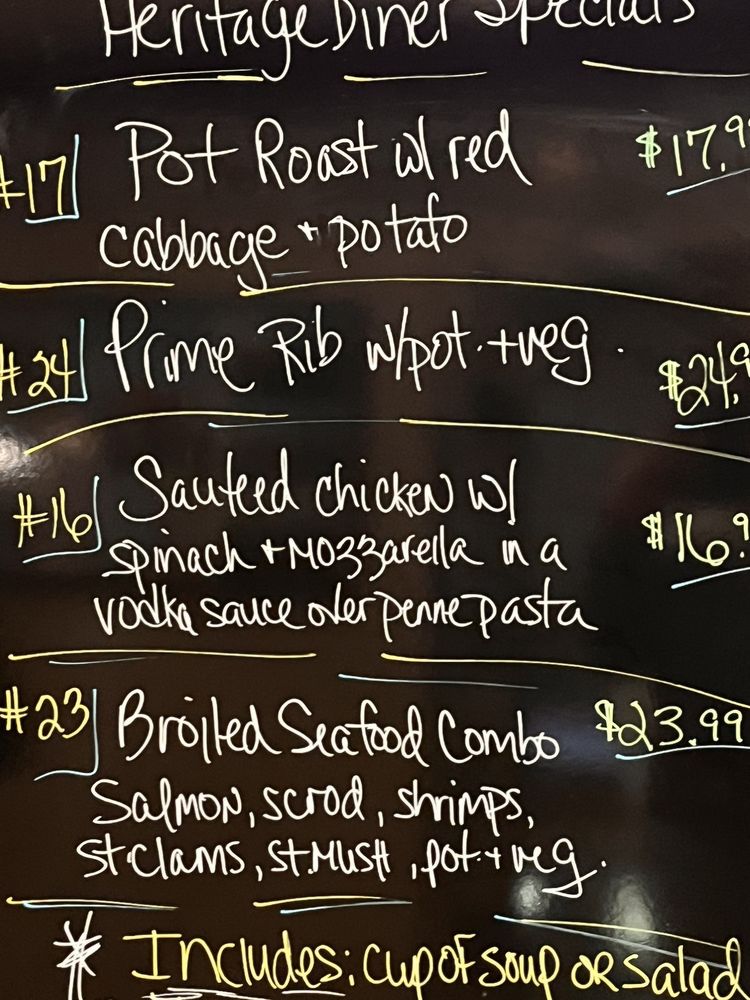 Heritage Diner Specials
#17 Pot Roast w/ red $17.9
cabbage + potato
#24 Prime Rib w/pot. + veg. $24.9
#16 Sauteed chicken w/ $16.9
spinach + mozzarella in a
vodka sauce over penne pasta
#23 Broiled Seafood Combo $23.99
Salmon, scrod, shrimps,
st clams, st. MUSH, pot. + veg.
* Includes: cup of soup or salad